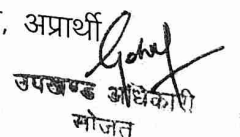 , अप्रार्थी
उपखण्ड अधिकारी
सोजत